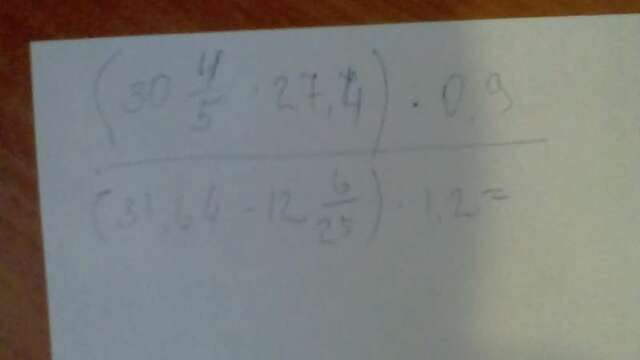 (30 4/5 · 27,4) · 0,9
(31,64 - 12 6/25) · 1,2 =